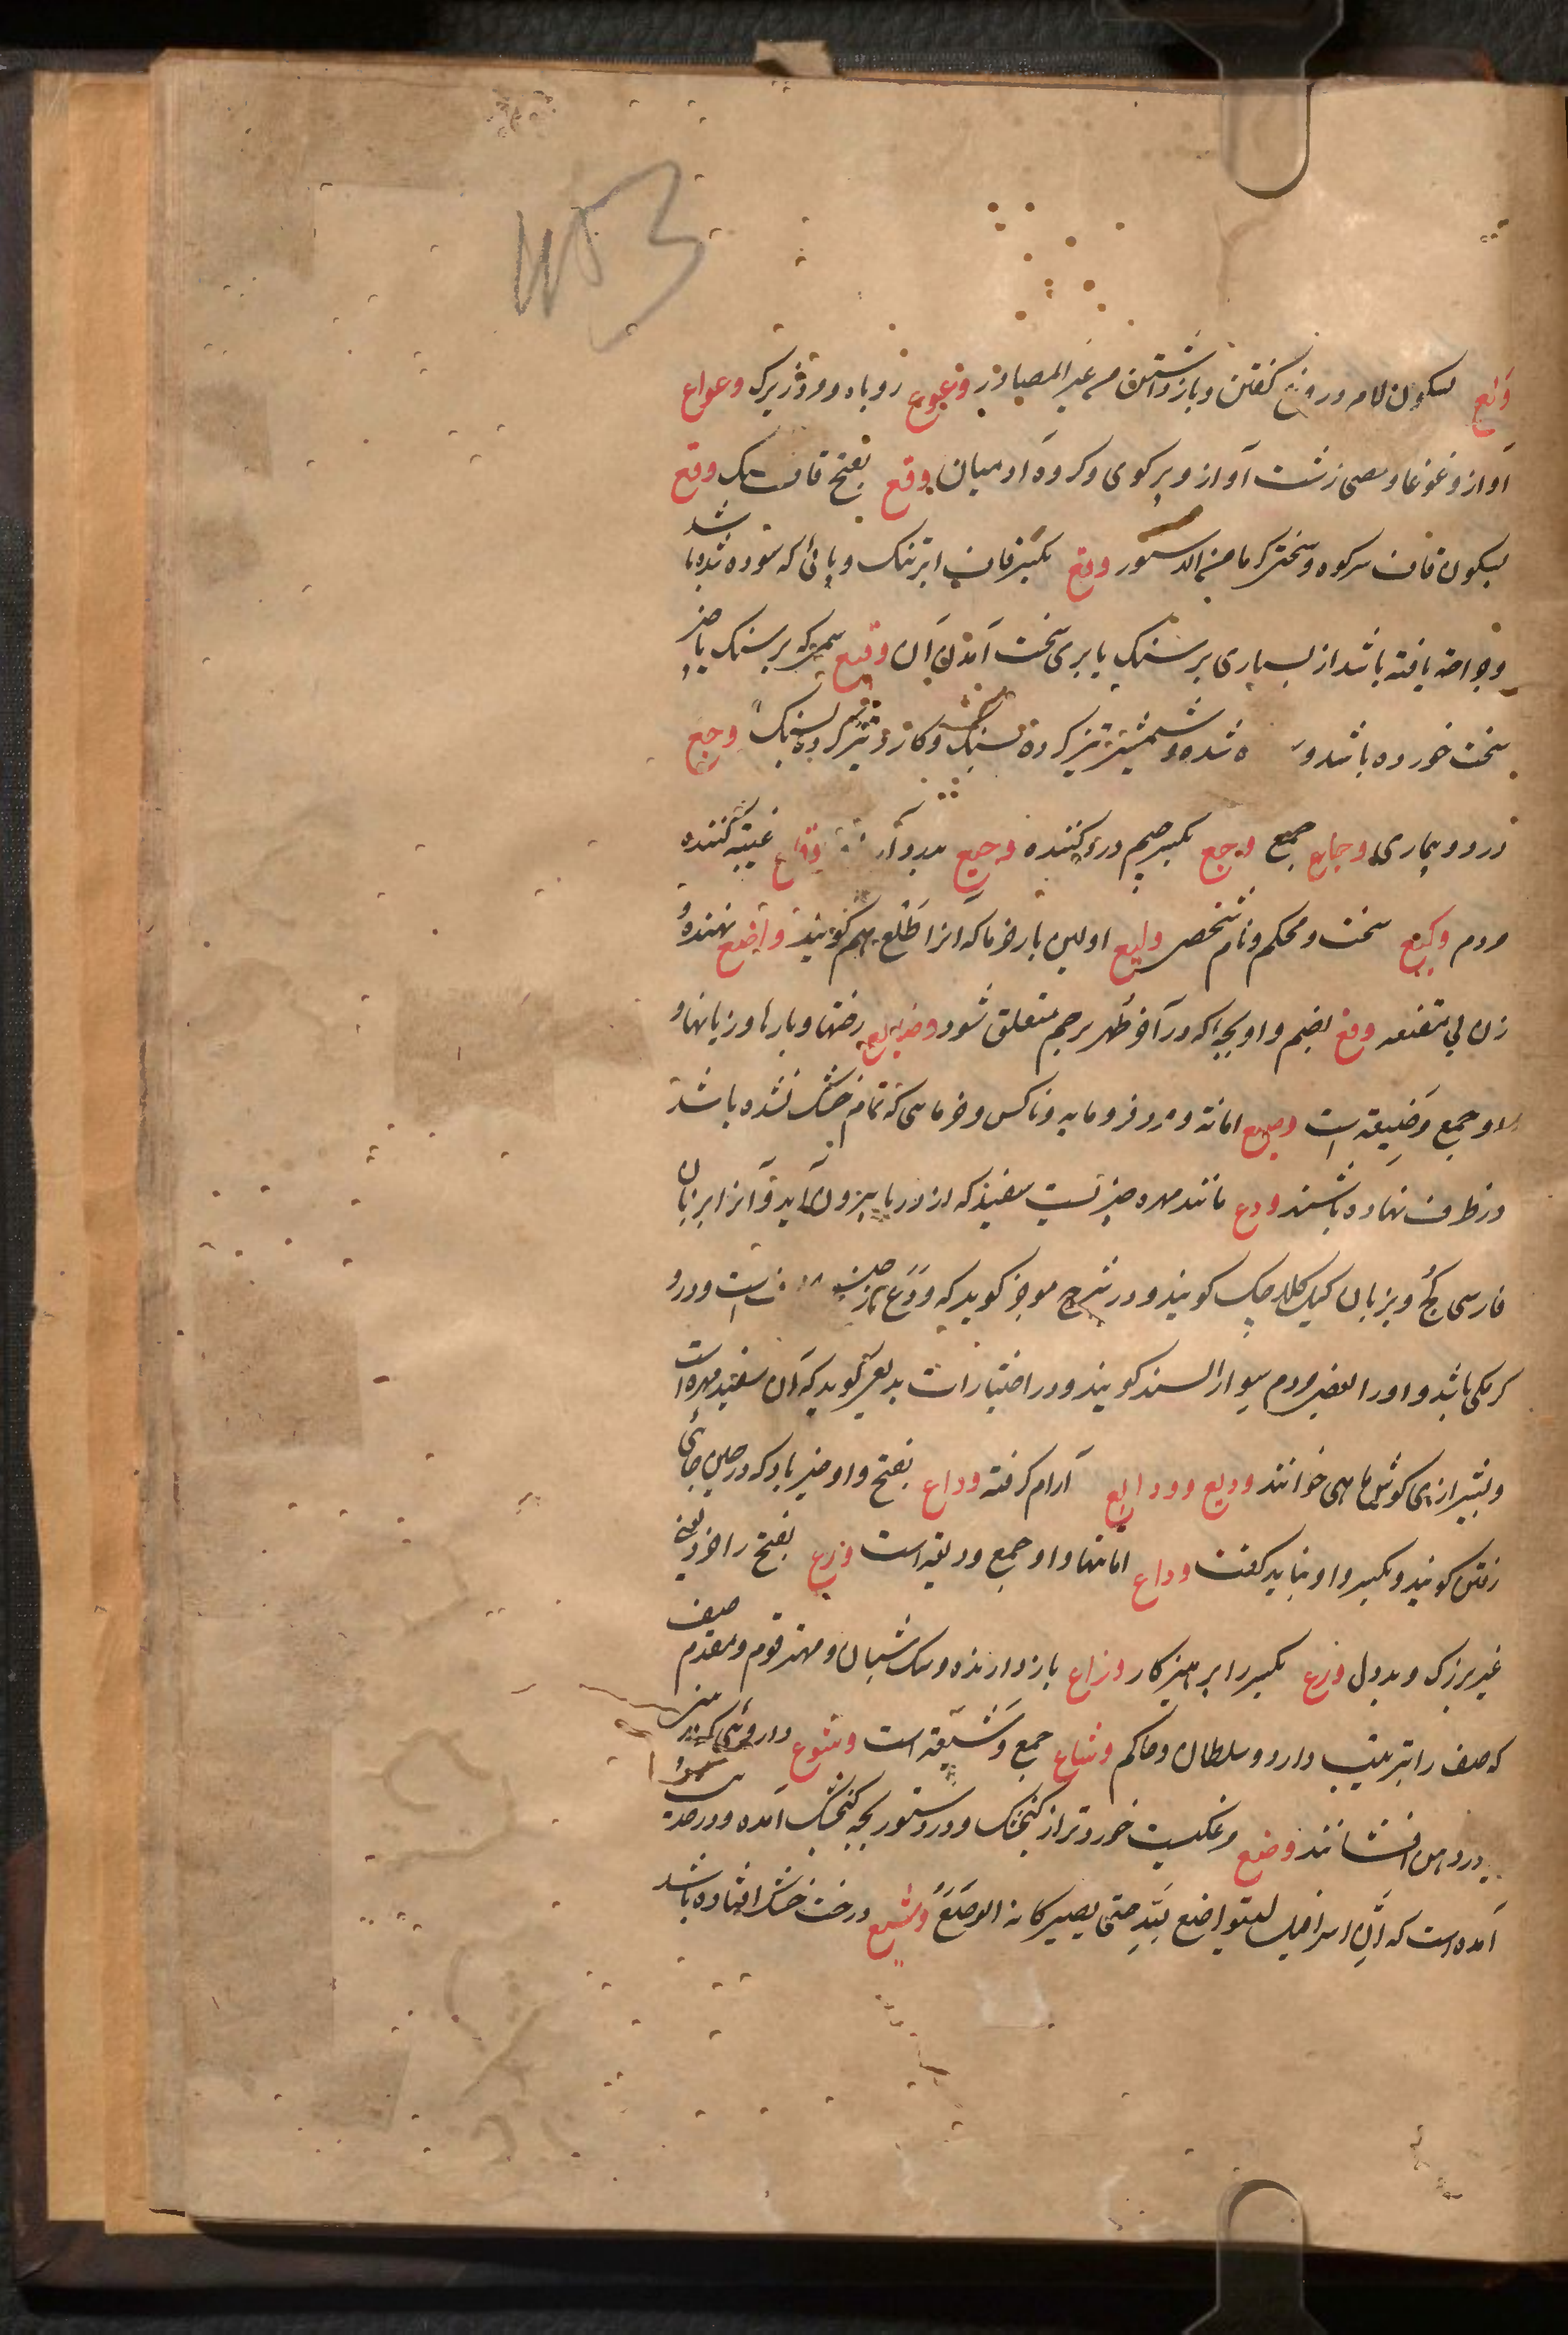 ولع بسکون لام دروغ گفتن و بازداشتن من غیر المصادر وعوع روباه و مرد زیرک وعواع
آواز و غوغا و مصی زشت آواز و پر کوی و کروه آدمیان وقع بفتح قاف سنک وقع
بسکون قاف سر کوه و سختی کرما من الدستور وقع بکسر قاف ابر تنک و پائی که سوده شده باشد
و جراحة یافته باشد از بسیاری بر سنک یا بر سخت آمدن آن وقیع سمی که بر سنک یا چیز
سخت خورده باشد و ه شده و شمشیر تیز کرده بسنک و کارد تیز کرده بسنک وجع
درد و بیماری وجاع جمع وجع بکسر جیم درد کننده وجیع وقاع غیبة کننده
مردم وکیع سخت و محکم و نام شخصی ولیع اولین بار خرما که آنرا طلع هم گویند واضع نهنده و
زن بی مقنعه وضع بضم واو بچه که در آخر طهر برحم متعلق شود وضایع رختها و بارها و زیانها و
او جمع وضیعة است وضیع امانة و مرد فرومایه و ناکس و خرمایی که تمام خشک نشده باشد
در ظرف نهاده باشند ودع مانند مهره چیزیست سفید که از دریا بیرون آید و آنرا بزبان
فارسی کج و بزبان کیل کلاچک گویند و در شرح موجز گوید که ودع است و درو
کرمکی باشد و او را بعضی مردم سوار السند گویند و در اختیارات بدیعی گوید که آن سفید مهره است
و بشیرازی کوش ماهی خوانند ودیع وودایع آرام گرفته وداع بفتح واو خیر باد که در حین جائی
رفتن گویند و بکسر واو نباید گفت وداع امانتها و او جمع ودیعه است ورع بفتح را خرد یعنی
غیر بزرگ و بددل ورع بکسر را پرهیزکار وزاع بازدارنده و سک شبان و مهتر قوم و مقدم صف
که صف را ترتیب دارد و سلطان و حاکم وشاع جمع وشیعة است وشوع داروئی که
در دهن افشانند وصع مرغکیست خوردتر از کنجشک و در دستور بچه کنجشک آمده و در حدیث
آمده است که ان اسرافیل لیتواضع لله حتی یصیر کانه الوصع وشیع درخت خشک افتاده باشد